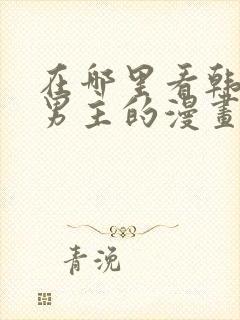 在哪里看韩
男主的漫畫
青浼